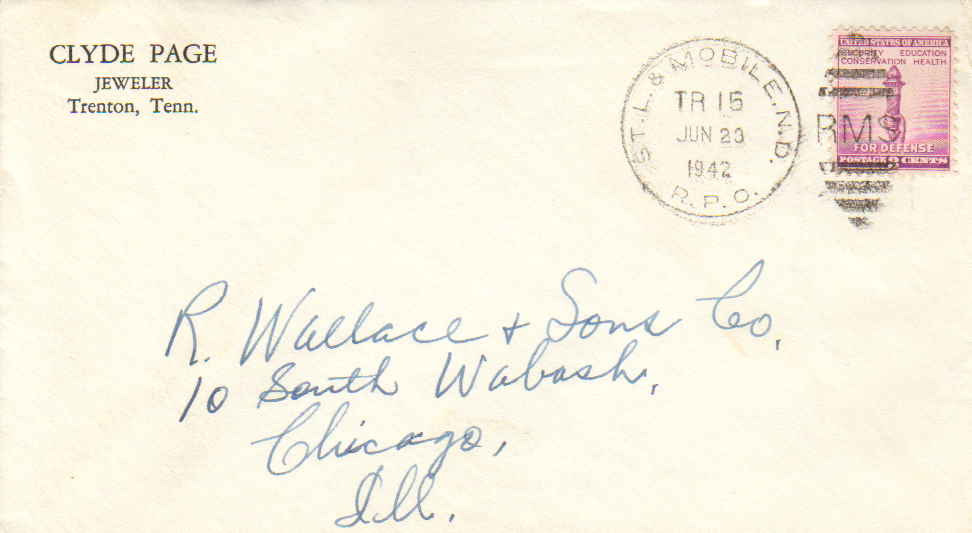 CLYDE PAGE
JEWELER
Trenton, Tenn.
ST. L. & MOBILE. N.D.
TR 15
JUN 23
1942
R.P.O.
RMS
UNITED STATES OF AMERICA
SECURITY EDUCATION
CONSERVATION HEALTH
FOR DEFENSE
POSTAGE 3 CENTS
R. Wallace + Sons Co,
10 South Wabash,
Chicago,
Ill.